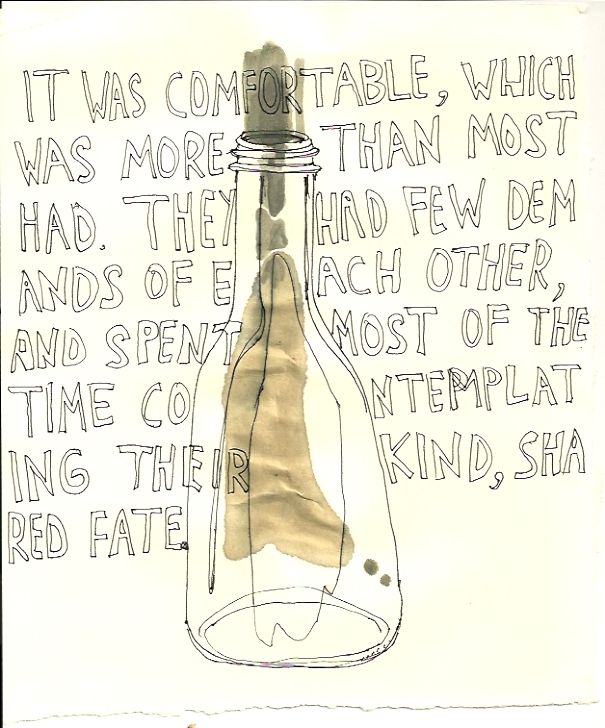 IT WAS COMFORTABLE, WHICH
WAS MORE THAN MOST
HAD. THEY HAD FEW DEM
ANDS OF EACH OTHER,
AND SPENT MOST OF THE
TIME CONTEMPLAT
ING THEIR KIND, SHA
RED FATE.